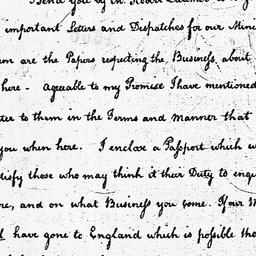 send you by Mr. Robert
important Letters and Dispatches for our Mini
em are the Papers respecting the Business about
here - Agreeable to my Promise I have mentioned
tter to them in the Terms and Manner that
you when here. I enclose a Passport which w
tisfy those who may think it their Duty to enqu
re, and on what Business you come. If our M
d have gone to England which is possible tho